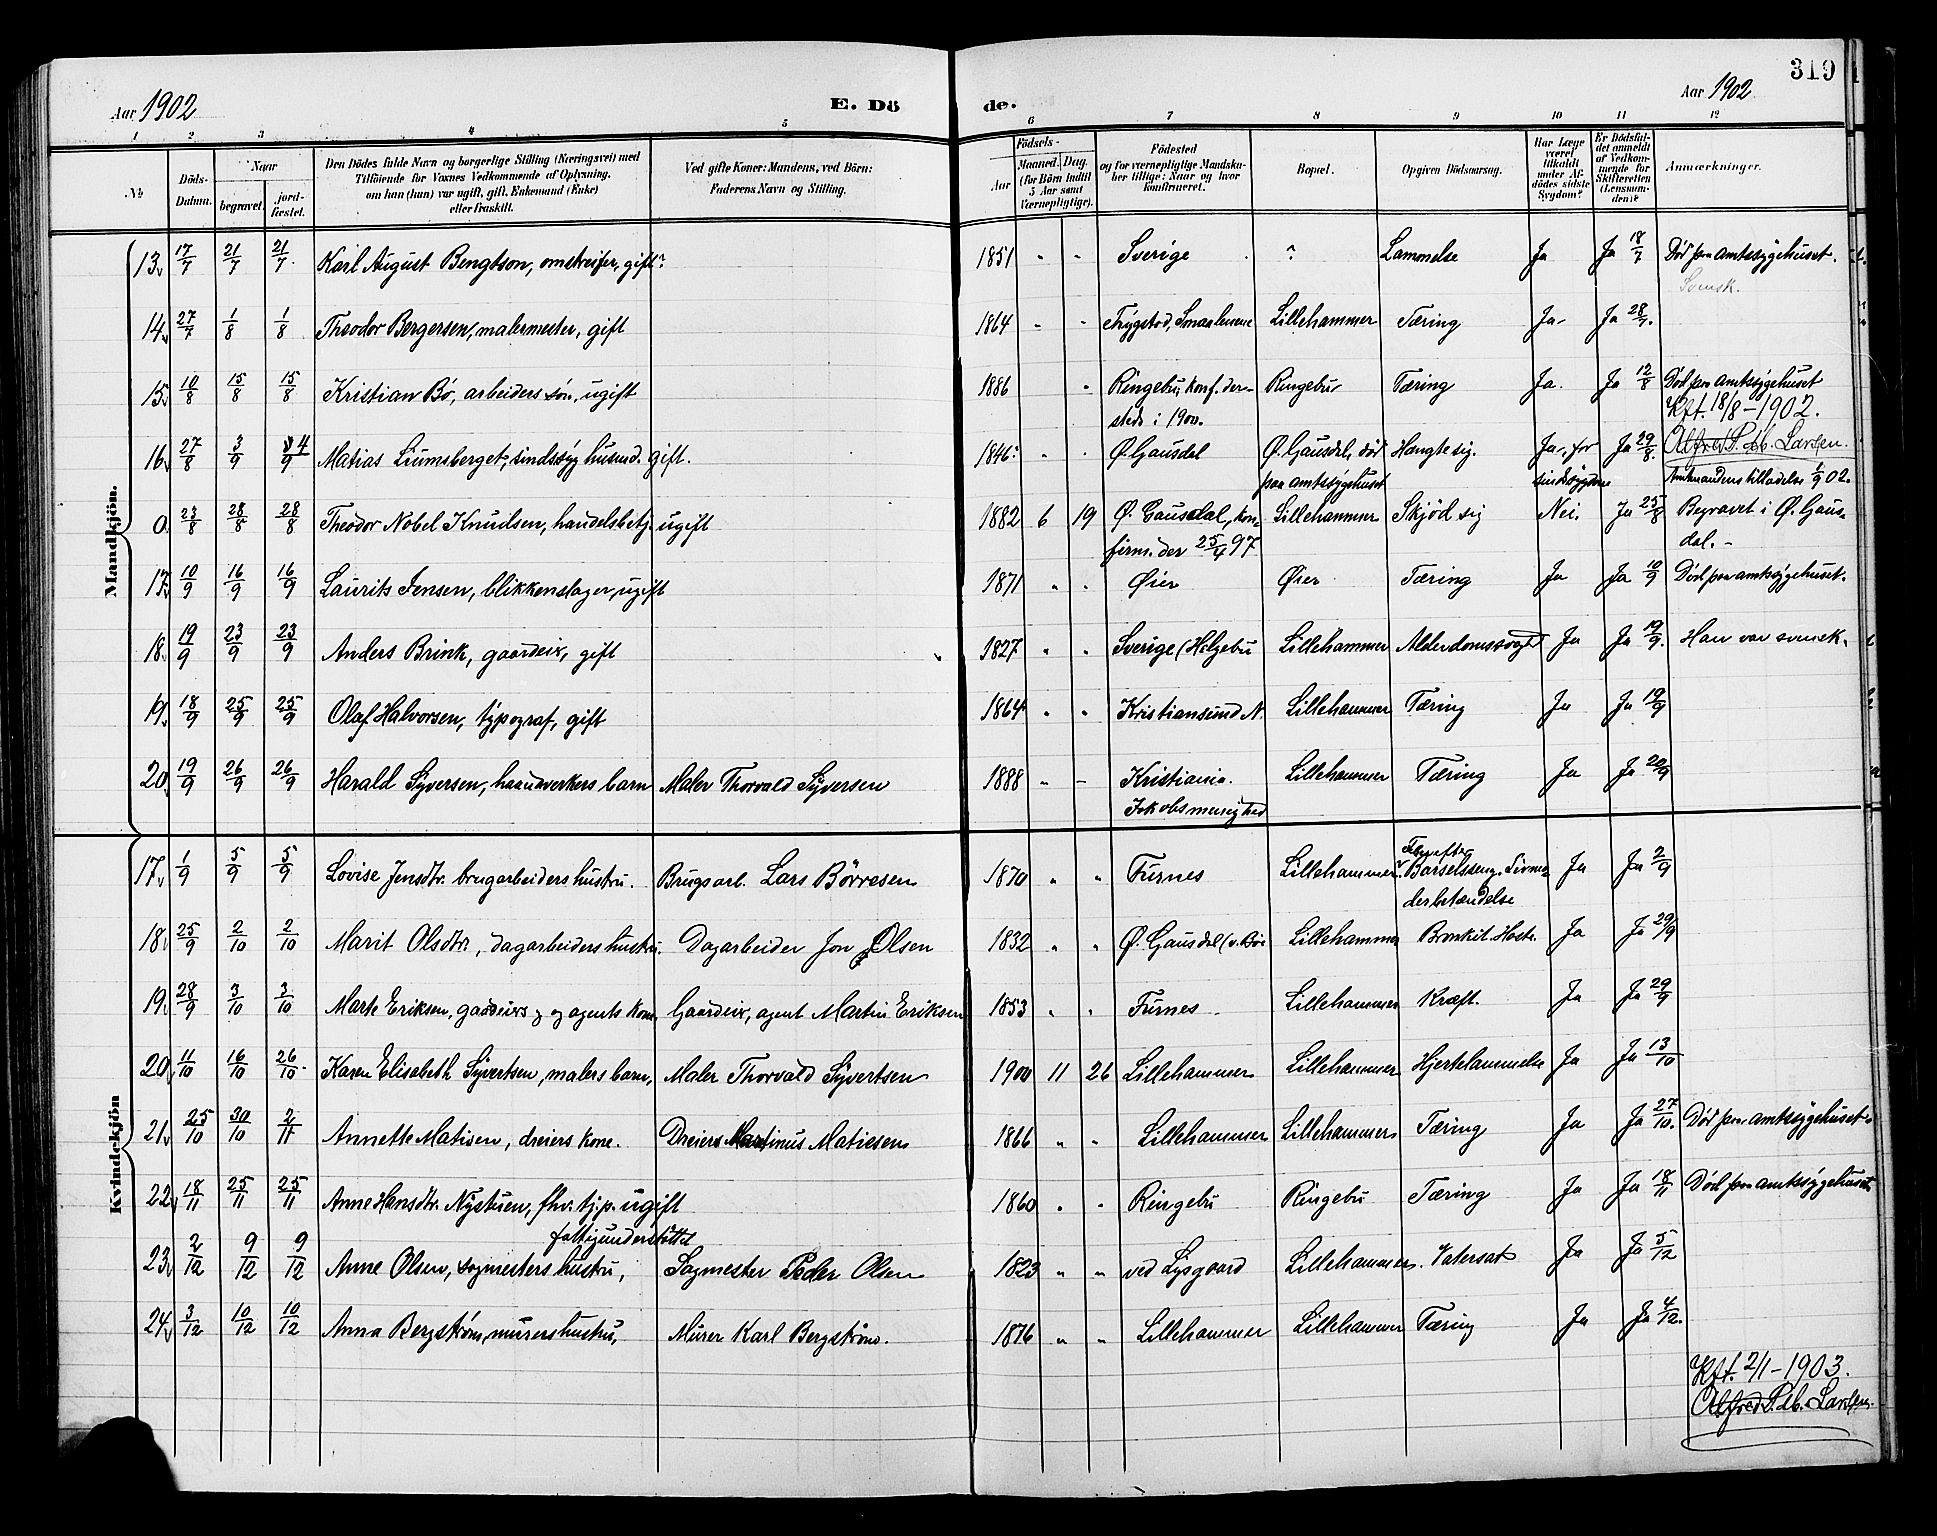 Aar 1902
E. Dö
de.
Aar 1902
319
1 2 3 4 5 6 7 8 9 10 11 12
No
Döds-Datum.
Naar
begravet.
jord-fæstet.
Den Dödes fulde Navn og borgerlige Stilling (Næringsvei) med
Tilföiende for Voxnes Vedkommende af Oplysning,
om han (hun) var ugift, gift, Enkemand (Enke)
eller fraskilt.
Ved gifte Koner: Mandens, ved Börn:
Faderens Navn og Stilling.
Födsels-
Aar
Maaned. Dag.
(for Börn indtil
5 Aar samt
Værnepligtige).
Födested
og for værnepligtige Mandska-
ber tillige: Naar og hvor
konfirmeret.
Bopæl.
Opgiven Dödsaarsag.
Har Læge
været
tilkaldt
under Af-
dödes sidste
Sygdom?
Er Dödsfal-
det anmeldt
af Vedkom-
mende for
Skifteretten
(Lensman-
den)?
Anmærkninger.
Mandkjön.
13 17/7 21/7 21/7 Karl August Bengtson, omstreifer, gift? 1851 " " Sverige ? Lammelse Ja Ja 18/7 Død paa amtssygehuset.
Svensk.
14 27/7 1/8 1/8 Theodor Bergersen, malermester, gift 1864 " " Trygstad, Smaalenene Lillehammer Tæring Ja Ja 28/7.
15 10/8 15/8 15/8 Kristian Bø, arbeiders søn, ugift 1886 " Ringebu, konf. der- Ringebu Tæring Ja. Ja 12/8 Død paa amtssygehuset
steds i 1900. Kft. 18/8-1902.
16 27/8 3/9 4/9 Matias Liumsberget, sindssyg husmd. gift. 1846? " " Ø. Gausdal Ø. Gausdal, død Hængte sig. Ja, for Ja 29/8. Alfred P. Lb. Larsen.
paa amtssygehuset sindssygdom Amtmandens tilladelse 1/9 02.
0 23/8 28/8 28/8 Theodor Nobel Knudsen, handelsbetj. ugift 1882 6 19 Ø. Gausdal, kon- Lillehammer Skjød sig Nei. Ja 25/8 Begravet i Ø. Gaus-
firm. der 25/4 97 dal. -
17 10/9 16/9 16/9 Laurits Jensen, blikkenslager, ugift 1871 " " Øier Øier Tæring Ja Ja 10/9 Død paa amtssygehuset.
18 19/9 23/9 23/9 Anders Brink, gaardeier, gift 1827 " " Sverige (Helgebu Lillehammer Alderdomssvagh Ja Ja 19/9. Han var svensk.
19 18/9 25/9 25/9 Olaf Halvorsen, typograf, gift 1864 " " Kristiansund N. Lillehammer Tæring Ja Ja 19/9
20 19/9 26/9 26/9 Harald Syversen, haandverkers barn Maler Thorvald Syversen 1888 " " Kristiania. Lillehammer Tæring Ja Ja 20/9
Jakobsmenighed
Kvindekjön
17 1/9 5/9 5/9 Lovise Jensdtr. brugarbeiders hustru. Brugsarb. Lars Børresen 1870 " " Furnes Lillehammer Barselseng. Ja Ja 2/9
derbetændelse
18 25/9 2/10 2/10 Marit Olsdtr, dagarbeiders hustru. Dagarbeider Jon Olsen 1832 " " Ø. Gausdal Lillehammer Bronkit. Hoste. Ja Ja 29/9
19 28/9 3/10 3/10 Marte Eriksen, gaardeiers og agents kone. Gaardeier, agent Martin Eriksen 1853 " " Furnes Lillehammer Kræft. Ja Ja 29/9
20 11/10 16/10 26/10 Karen Elisabeth Syvertsen, malers barn, Maler Thorvald Syvertsen 1900 11 26 Lillehammer Lillehammer Hjertelammelse Ja Ja 13/10
21 25/10 30/10 2/11 Annette Matisen, dreiers kone. Dreier Martinus Matiesen 1866 " " Lillehammer Lillehammer Tæring Ja Ja 27/10. Død paa amtssygehuset.
22 18/11 25/11 25/11 Anne Hansdtr. Nystuen, fhv. tj.p. ugift 1860 " " Ringebu Ringebu Tæring Ja Ja 18/11 Død paa amtssygehuset
fattigunderstøttet
23 2/12 9/12 9/12 Anne Olsen, sagmesters hustru, Sagmester Peder Olsen 1823 " " ved Lysgaard Lillehammer. Vatersot Ja Ja 5/12
24 3/12 10/12 10/12 Anna Bergstrøm, murers hustru, Murer Karl Bergstrøm. 1876 " " Lillehammer Lillehammer Tæring Ja Ja 4/12.
Kft. 2/1-1903.
Alfred P. Lb. Larsen.